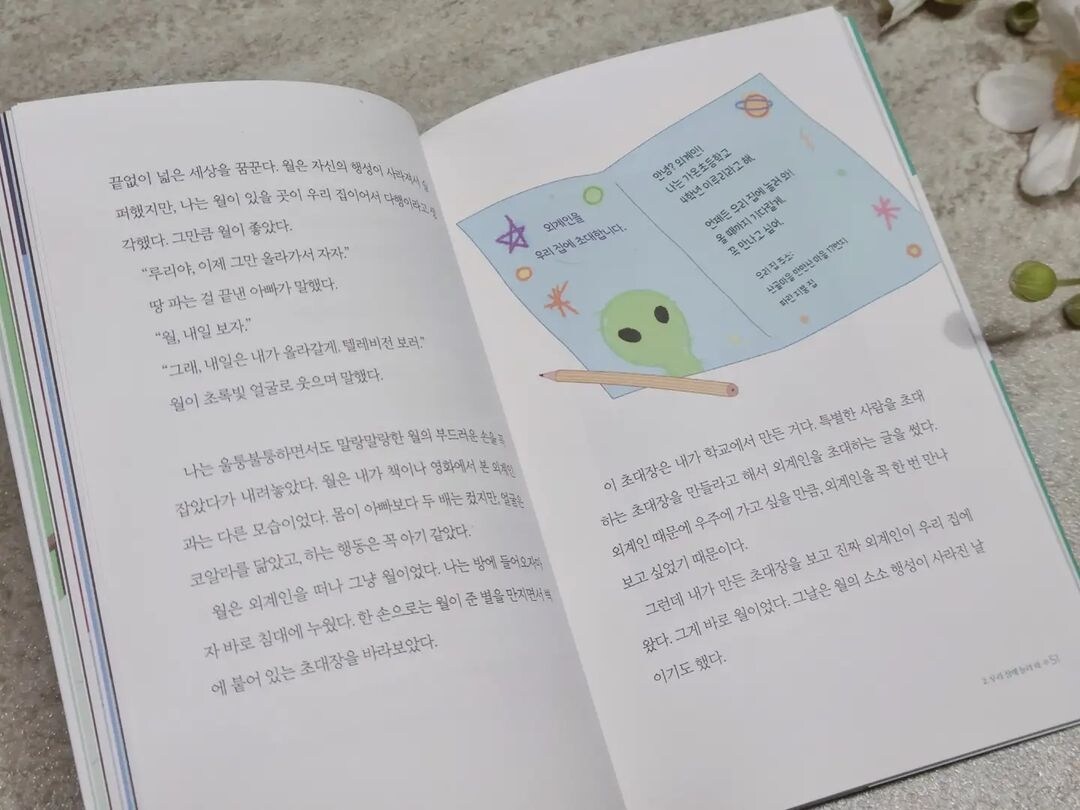 끝없이 넓은 세상을 꿈꾼다. 월은 자신의 행성이 사라져서 슬
퍼했지만, 나는 월이 있을 곳이 우리 집이어서 다행이라고 생
각했다. 그만큼 월이 좋았다.
“루리야, 이제 그만 올라가서 자자.”
땅 파는 걸 끝낸 아빠가 말했다.
“월, 내일 보자.”
“그래, 내일은 내가 올라갈게. 텔레비전 보러.”
월이 초록빛 얼굴로 웃으며 말했다.
나는 울퉁불퉁하면서도 말랑말랑한 월의 부드러운 손을 꼭
잡았다가 내려놓았다. 월은 내가 책이나 영화에서 본 외계인
과는 다른 모습이었다. 몸이 아빠보다 두 배는 컸지만, 얼굴은
코알라를 닮았고, 하는 행동은 꼭 아기 같았다.
월은 외계인을 떠나 그냥 월이었다. 나는 방에 들어오자마
자 바로 침대에 누웠다. 한 손으로는 월이 준 별을 만지면서 벽
에 붙어 있는 초대장을 바라보았다.
외계인을
우리 집에 초대합니다.
안녕? 외계인!
나는 가운초등학교
4학년 이루리라고 해.
언제든 우리 집에 놀러 와!
올 때까지 기다릴게.
꼭 만나고 싶어.
우리 집 주소:
산골마을 만만산 마을 17번지
파란 지붕 집
이 초대장은 내가 학교에서 만든 거다. 특별한 사람을 초대
하는 초대장을 만들라고 해서 외계인을 초대하는 글을 썼다.
외계인 때문에 우주에 가고 싶을 만큼, 외계인을 꼭 한 번 만나
보고 싶었기 때문이다.
그런데 내가 만든 초대장을 보고 진짜 외계인이 우리 집에
왔다. 그게 바로 월이었다. 그날은 월의 소소 행성이 사라진 날
이기도 했다.
2. 우리 집에 놀러 와
51